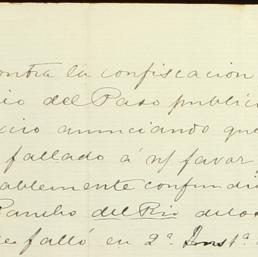 ontra la confiscación
io del Paso publico
cio anunciando que
fallado á n/ favor
ablemente confundi
Rancho del Rio de los
e falló en 2ª Inst.ª